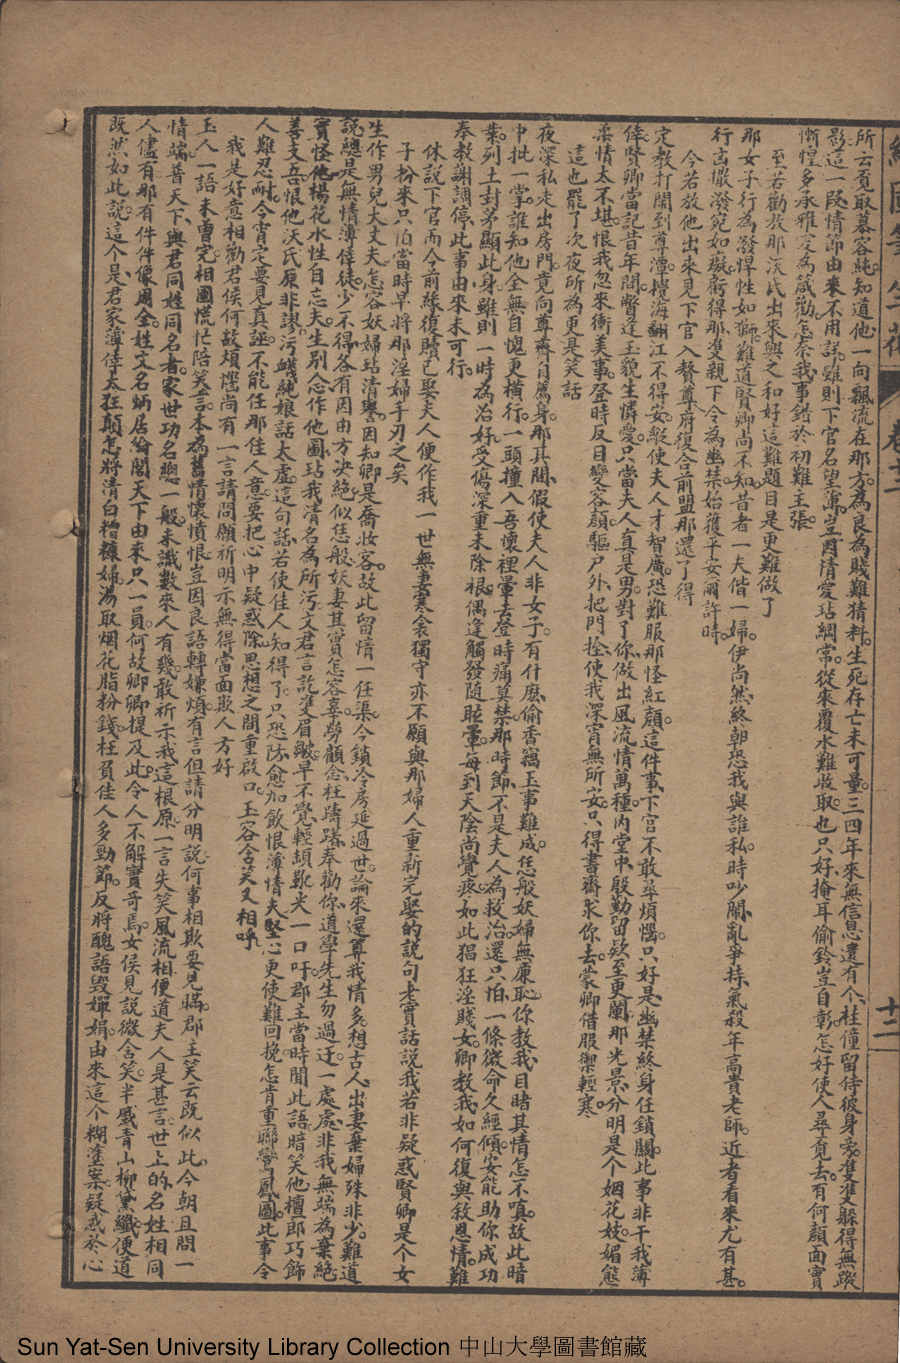 所云覓取慕容純。知道他一向飄流在那方。為良為賤難猜料。生死存亡未可量。三四年來無信息。還有个桂僮留侍彼身旁。雙雙躲得無蹤
影。這一段情節由來不用詳。雖則下官名望薄。豈因情愛玷綱常。從來覆水難收取。也只好掩耳偷鈴豈自彰。怎好使人尋覓去。有何顏面實
慚惶。多承雅愛為箴勸。怎奈我事錯於初難主張。
至若勸放那沃氏出來與之和好這難題目是更難做了
那女子行為潑悍性如獅。難道賢卿尚不知。昔者一夫偕一婦。伊尚然終朝恐我與誰私。時吵鬧亂爭持。氣殺年高貴老師。近者看來尤有甚。
行古撒潑宛如癡。虧得那雙親下令為幽禁。始獲平安爾許時。
今若放他出來見下官入贅尊府復合前盟那還了得
定教打鬧到尊潭。攪海翻江不得安。縱使夫人才智廣。恐難服那怪紅顏。這件事下官不敢尋煩惱。只好是幽禁終身任鎖關。此事非干我薄
倖。賢卿當記昔年間。瞥逢玉貌生憐愛。只當夫人真是男。對了你做出風流情萬種。內堂中殷勤留欵至更闌。那光景分明是个烟花妓。媚態
柔情太不堪。恨我忽來衝美事。登時反目變容顏。驅戶外把門拴。使我深宵無所安。只得書齋求你去。蒙卿借服禦輕寒。
這也罷了次夜所為更是笑話
夜深私走出房門。竟向尊齋自薦身。那其間假使夫人非女子。有什麽偷香竊玉事難成。恁般妖婦無廉恥。你教我目睹其情怎不嗔。故此暗
中批一掌。誰知他全無自愧更橫行。一頭撞入吾懷裡。暈去登時痛莫禁。那時節不是夫人為救治。還只怕一條微命久經傾。安能助你成功
業。列土封茅顯此身。雖則一時為治好。受傷深重未除根。偶逢觸發隨眩暈。每到天陰尚覺疼。如此猖狂淫賤女。卿教我如何復與敘恩情。難
奉教謝調停。此事由來未可行。
休說下官而今前緣復贖已娶夫人便作我一世無妻寒衾獨守亦不願與那婦人重新完娶的說句老實話說我若非疑惑賢卿是个女
子扮來只怕當時早將那淫婦手刃之矣
生作男兒大丈夫。怎容妖婦玷清譽。因知卿是喬妝客。故此留情一任渠。今鎖冷房延過世。論來還算我情多。想古人出妻棄婦殊非少。難道
說總是無情薄倖徒。少不得各有因由方決絕。似恁般妖妻其實怎容辜。勞顧念枉躊躇。奉勸你道學先生勿過迂。一處處非我無端為棄絕
實怪他楊花水性自忘夫。生別念作他圖。玷我清名為所污。文君言訖雙眉皺。早不覺輕頓靴尖一口吁。郡主當時聞此語。暗笑他檀郎巧飾
善支吾。恨他沃氏原非謬。污衊純娘話太虛。這句話若使佳人知得了。只恐防愈加飲恨薄情夫。堅心更使難回挽。怎肯重聯鸞鳳圖。此事令
人難忍耐。今宵定要見真誣。不能任那佳人意。要把心中疑惑除。思想之間重啟口。玉容含笑又相呼。
我是好意相勸君侯何故煩惱尚有一言請問願祈明示無得當面欺人方好
玉人一語未曾完。相國慌忙陪笑言。本為舊情懷憤恨。豈因良語轉嫌煩。有言但請分明說。何事相欺要見瞞。郡主笑云既似此。今朝且問一
情端。普天下與君同姓同名者。家世功名總一般。未識數來人有幾。敢祈示我這根原。一言失笑風流相。便道夫人是甚言。世上的名姓相同
人儘有。那有件件像周全。姓文名炳居綸閣。天下由來只一員。何故卿卿提及此。令人不解實奇焉。女侯見說微含笑。半蹙青山柳黛纖。便道
既然如此說。這个是君家薄倖太狂顛。怎將清白糟糠婦。湯取烟花脂粉錢。枉負佳人多勁節。反將醜語毀嬋娟。由來這个糊塗案。疑惑於心
十二
Sun Yat-Sen University Library Collection 中山大學圖書館藏